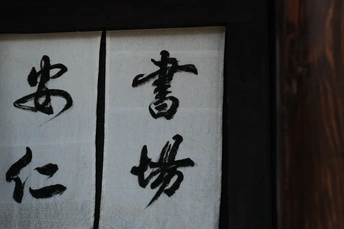 安仁
書場